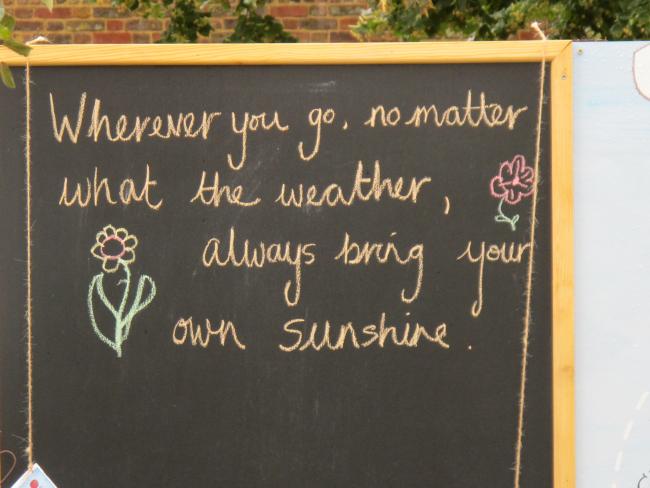 Wherever you go, no matter
what the weather,
always bring your
own sunshine.